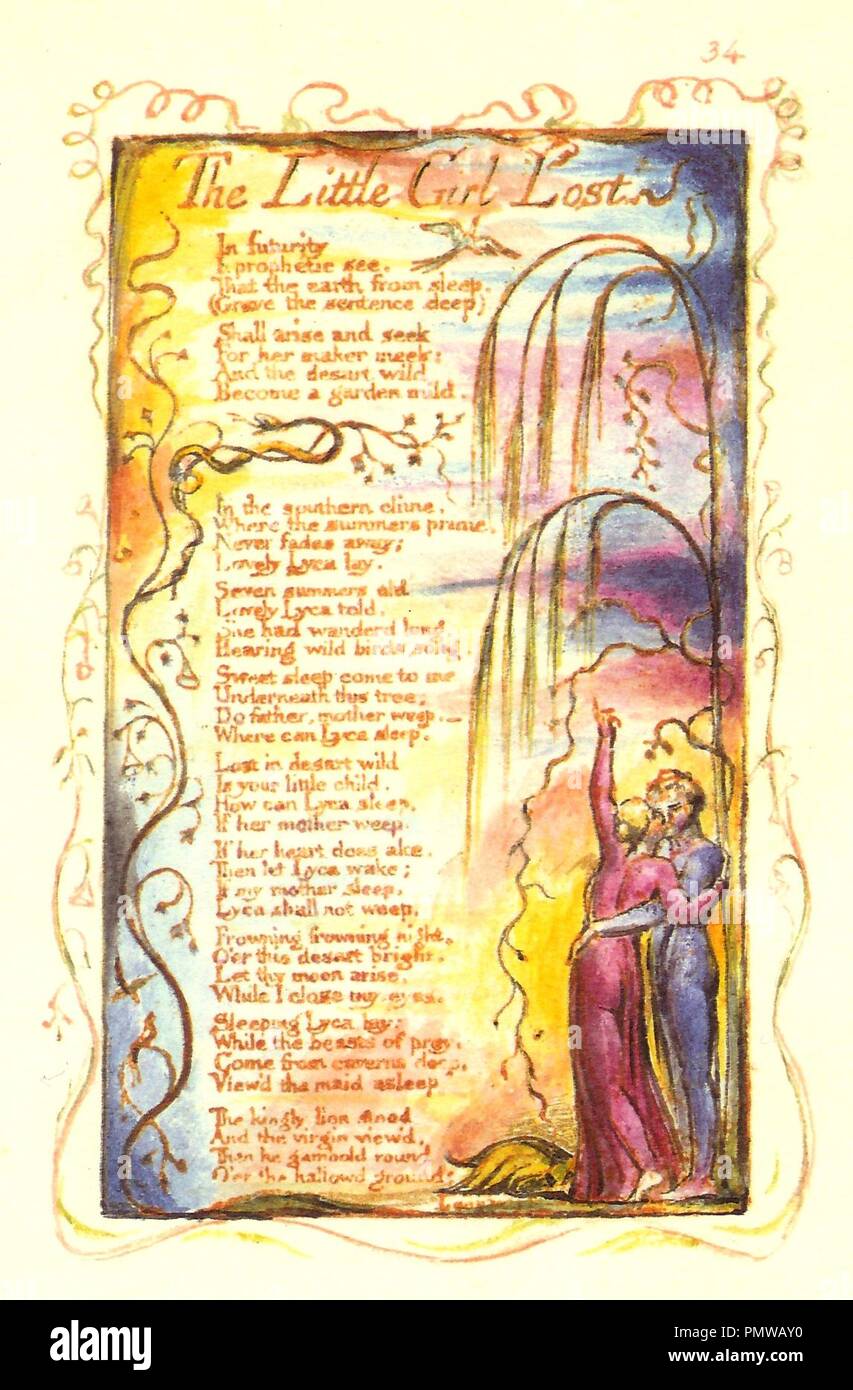 34
The Little Girl Lost
In futurity
I prophetic see.
That the earth from sleep.
(Grave the sentence deep)
Shall arise and seek
For her maker meek:
And the desart wild
Become a garden mild.
In the southern clime,
Where the summers prime,
Never fades away;
Lovely Lyca lay.
Seven summers old
Lovely Lyca told,
She had wanderd long
Hearing wild birds song.
Sweet sleep come to me
Underneath this tree;
Do father, mother weep.—
Where can Lyca sleep.
Lost in desart wild
Is your little child.
How can Lyca sleep,
If her mother weep.
If her heart does ake.
Then let Lyca wake;
If my mother sleep,
Lyca shall not weep.
Frowning frowning night,
O'er this desart bright.
Let thy moon arise,
While I close my eyes.
Sleeping Lyca lay;
While the beasts of prey,
Come from caverns deep,
View'd the maid asleep
The kingly lion stood
And the virgin view'd,
Then he gambold round
O'er the hallowd ground:
a alamy stock photo
alamy
Image ID: PMWAY0
www.alamy.com